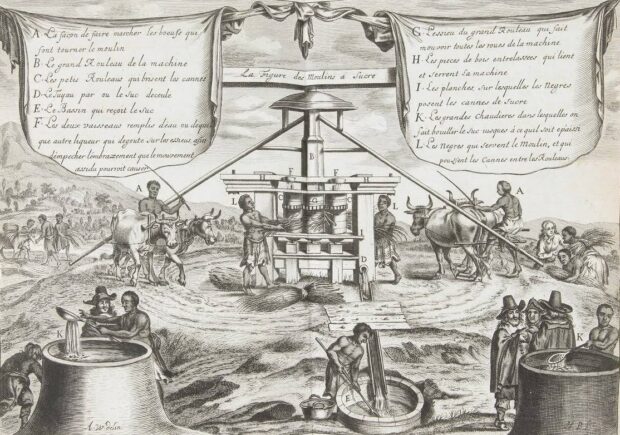 A La façon de faire marcher les boeufs qui
font tourner le moulin
B Le grand Rouleau de la machine
C Les petis Rouleaus qui brisent les cannes
D Le Tuyau par ou le Suc decoule
E Le Bassin qui reçoit le suc
F Les deux vaisseaus remplis d'eau ou de
que autre liqueur qui degoute sur les essieus afin
d'empecher l'embrazement que le mouvement
assidu pourroit causer
La Figure des Moulins à Sucre
G L'essieu du grand Rouleau qui fait
mouvoir toutes les roues de la machine
H Les pieces de bois entrelassees qui lient
et serrent la machine
I Les planches sur lesquelles les Negres
posent les cannes de Sucre
K Les grandes Chaudieres dans lesquelles on
fait bouillir le Suc iusques à ce quil soit epaissi
L Les Negres qui servent le Moulin, et qui
poussent les Cannes entre les Rouleaus
B
F F
H H
A L L A
G
I
D
K K
E
A W delin